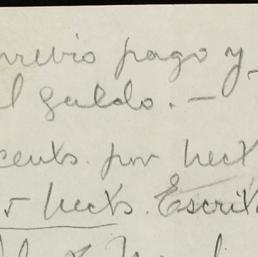 previo pago y
el saldo. —
cents. por hect
r hects. Escrit